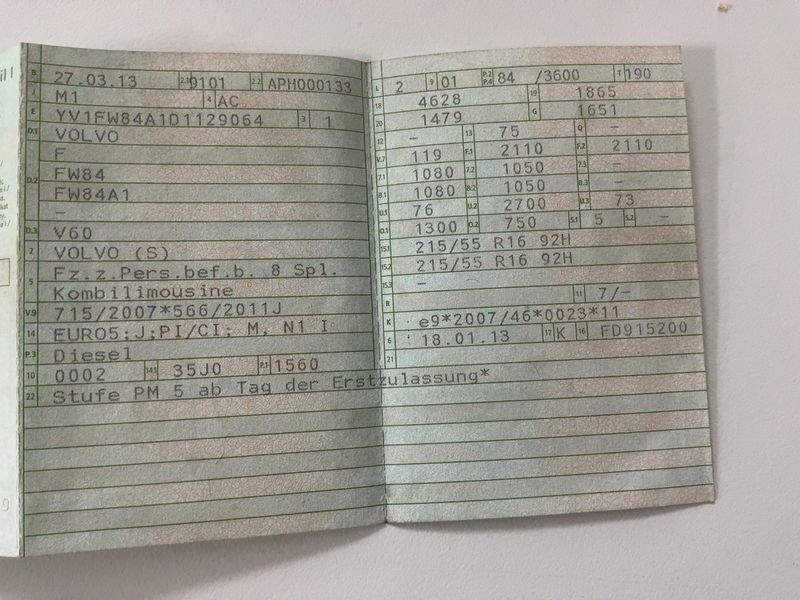 B 27.03.13 2.1 9101 2.2 APH000133
J M1 4 AC
E YV1FW84A1D1129064 3 1
D.1 VOLVO
F
D.2 FW84
FW84A1
–
D.3 V60
2 VOLVO (S)
5 Fz.z.Pers.bef.b. 8 Spl.
Kombilimousine
V.9 715/2007*566/2011J
14 EURO5;J;PI/CI; M, N1 I
P.3 Diesel
10 0002 14.1 35J0 P.1 1560
22 Stufe PM 5 ab Tag der Erstzulassung*
L 2 9 01 P.2 P.4 84 /3600 T 190
18 4628 19 1865
20 1479 G 1651
12 – 13 75 Q –
V.7 119 F.1 2110 F.2 2110
7.1 1080 7.2 1050 7.3 –
8.1 1080 8.2 1050 8.3 –
U.1 76 U.2 2700 U.3 73
O.1 1300 O.2 750 S.1 5 S.2 –
15.1 215/55 R16 92H
15.2 215/55 R16 92H
15.3 –
R 11 7/–
K e9*2007/46*0023*11
6 18.01.13 17 K 16 FD915200
21